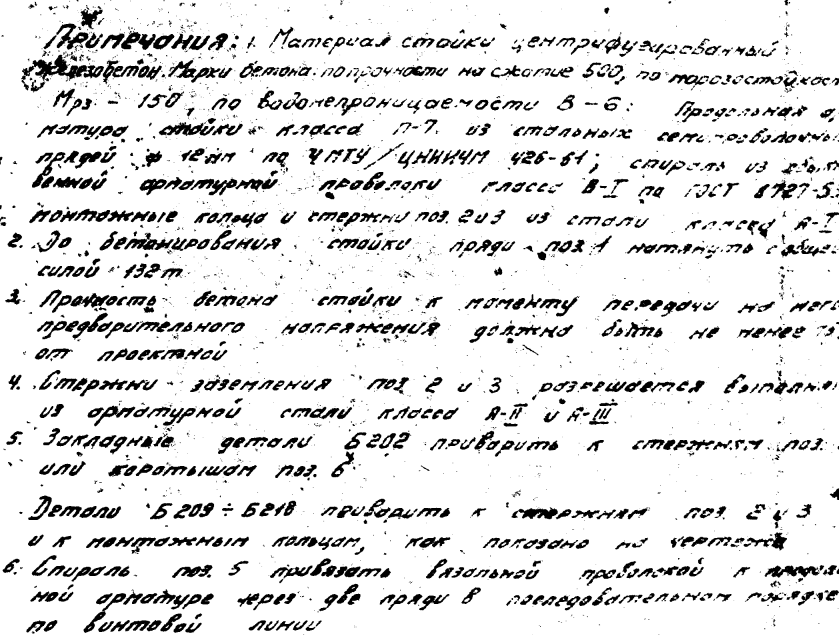 Примечания: 1. Материал стойки центрифугированный
железобетон. Марки бетона: по прочности на сжатие 500, по морозостойкост
Мрз - 150, по водонепроницаемости В-6. Продольная а
матура стойки класса П-7 из стальных семипроволочны
прядей ф 12 мм по ЧМТУ/ЦНИИЧМ 426-61; спираль из
венной арматурной проволоки класса В-I по ГОСТ 6727-53
монтажные кольца и стержни поз. 2 и 3 из стали класса А-I
2. До бетонирования стойки пряди поз. 1 натянуть с обще
силой 132 т
3. Прочность бетона стойки к моменту передачи на него
предварительного напряжения должна быть не менее
от проектной
4. Стержни заземления поз. 2 и 3 разрешается выполня
из арматурной стали класса А-II и А-III
5. Закладные детали Б202 приварить к стержням поз.
или коротышам поз. 6
Детали Б209÷Б218 приварить к стержням поз. 2 и 3
и к монтажным кольцам, как показано на чертеже
6. Спираль поз. 5 привязать вязальной проволокой к продол
ной арматуре через две пряди в последовательном порядке
по винтовой линии